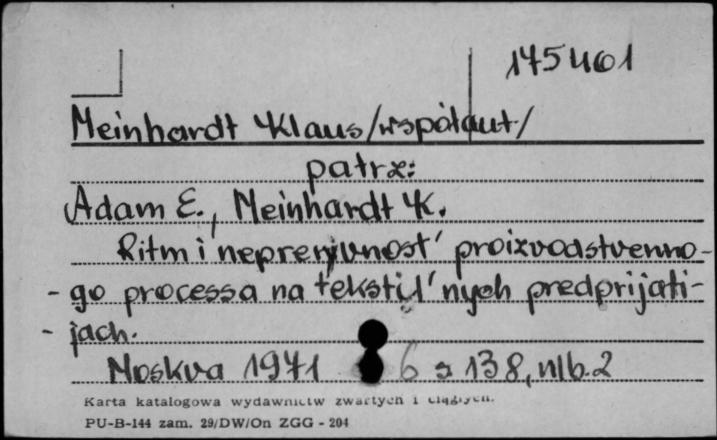 175461
Meinhardt Klaus/współaut/
patrz:
Adam E., Meinhardt K.
Ritm i nepreryvnost' proizvodstvenno-
- go processa na tekstil'nych predprijati-
- jach.
Moskva 1971 6 s 138, nlb. 2
Karta katalogowa wydawnictw zwartych i ciągłych.
PU-B-144 zam. 29/DW/On ZGG - 204